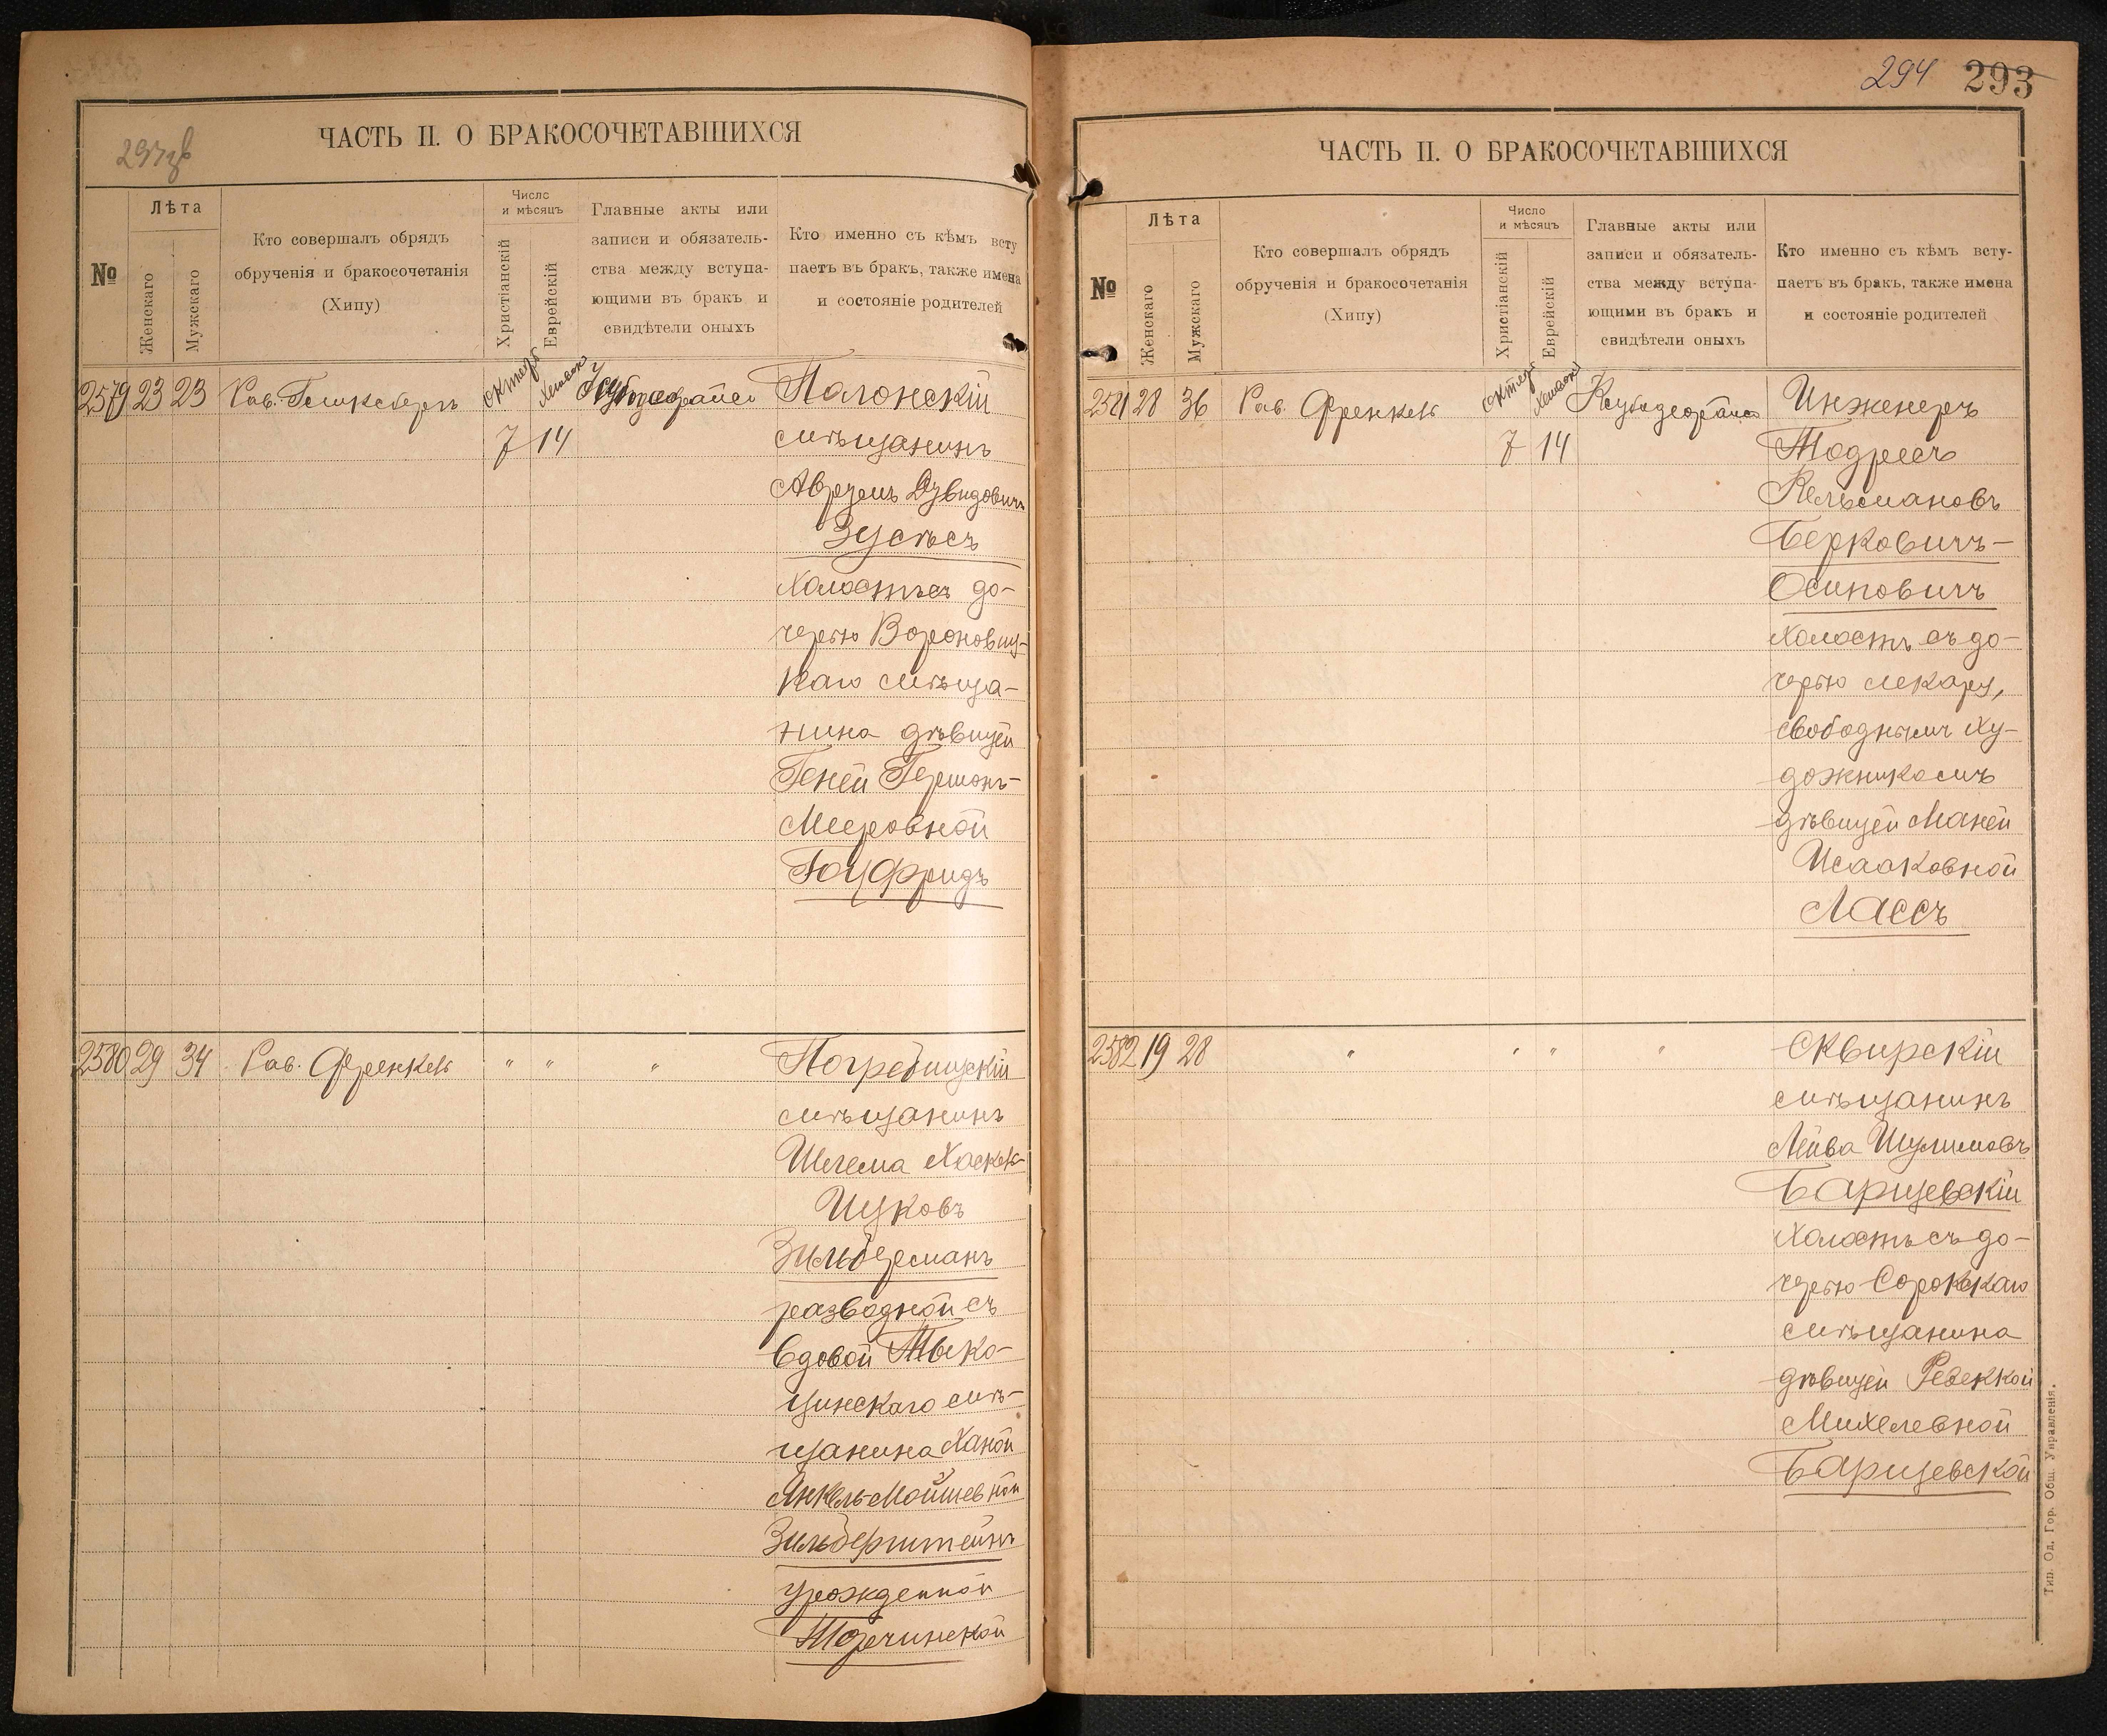 ЧАСТЬ II. О БРАКОСОЧЕТАВШИХСЯ
№
Лѣта
Женскаго
Мужскаго
Кто совершалъ обрядъ
обрученія и бракосочетанія
(Хипу)
Число
и мѣсяцъ
Христіанскій
Еврейскій
Главные акты или
записи и обязатель-
ства между вступа-
ющими въ бракъ и
свидѣтели оныхъ
Кто именно съ кѣмъ всту
паетъ въ бракъ, также имена
и состояніе родителей
2579 23 23 Рав. октяб
7 14
Полонскій
мѣщанинъ
Аврумъ Дувидовичъ
Зусьесъ
холостъ съ до-
черью Вороновиц-
каго мѣща-
нина дѣвицей
Геней Гершонъ-
Мееровной
Гоуфридъ
2580 29 34 Рав. Френкель " " "
Погребищскій
мѣщанинъ
Шлема Хаскель-
Ицковъ
Зильберманъ
разводной съ
вдовой Тыко-
цинскаго мѣ-
щанина Ханой
Янкель-Мойшевной
Зильберштейнъ
урожденной
Торчинской
294 293
ЧАСТЬ II. О БРАКОСОЧЕТАВШИХСЯ
№
Лѣта
Женскаго
Мужскаго
Кто совершалъ обрядъ
обрученія и бракосочетанія
(Хипу)
Число
и мѣсяцъ
Христіанскій
Еврейскій
Главные акты или
записи и обязатель-
ства между вступа-
ющими въ бракъ и
свидѣтели оныхъ
Кто именно съ кѣмъ всту-
паетъ въ бракъ, также имена
и состояніе родителей
2581 28 36 Рав. Френкель октяб
7 14
Инженеръ
Тодресъ
Кельмановъ
Берковичъ-
Осиповичъ
холостъ съ до-
черью лекаря,
свободнымъ ху-
дожникомъ
дѣвицей Маней
Исааковной
Лассъ
2582 19 28 " " " "
Сквирскій
мѣщанинъ
Лейва Шулимовъ
Барщевскій
холостъ съ до-
черью Сорокскаго
мѣщанина
дѣвицей Ребеккой
Михелевной
Барщевской
Тип. Од. Гор. Общ. Управленія.